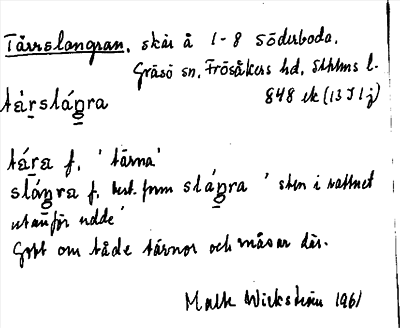 Tärrslangran, skär å 1-8 Söderboda,
Gräsö sn, Frösåkers hd, Sthlms l.
848 ek (13 I 1 j)
tä̀rslángra
tä́ra f. 'tärna'
slángra f. best. form slángra 'sten i vattnet
utanför udde'
Gott om både tärnor och måsar där.
Matts Wickström 1961